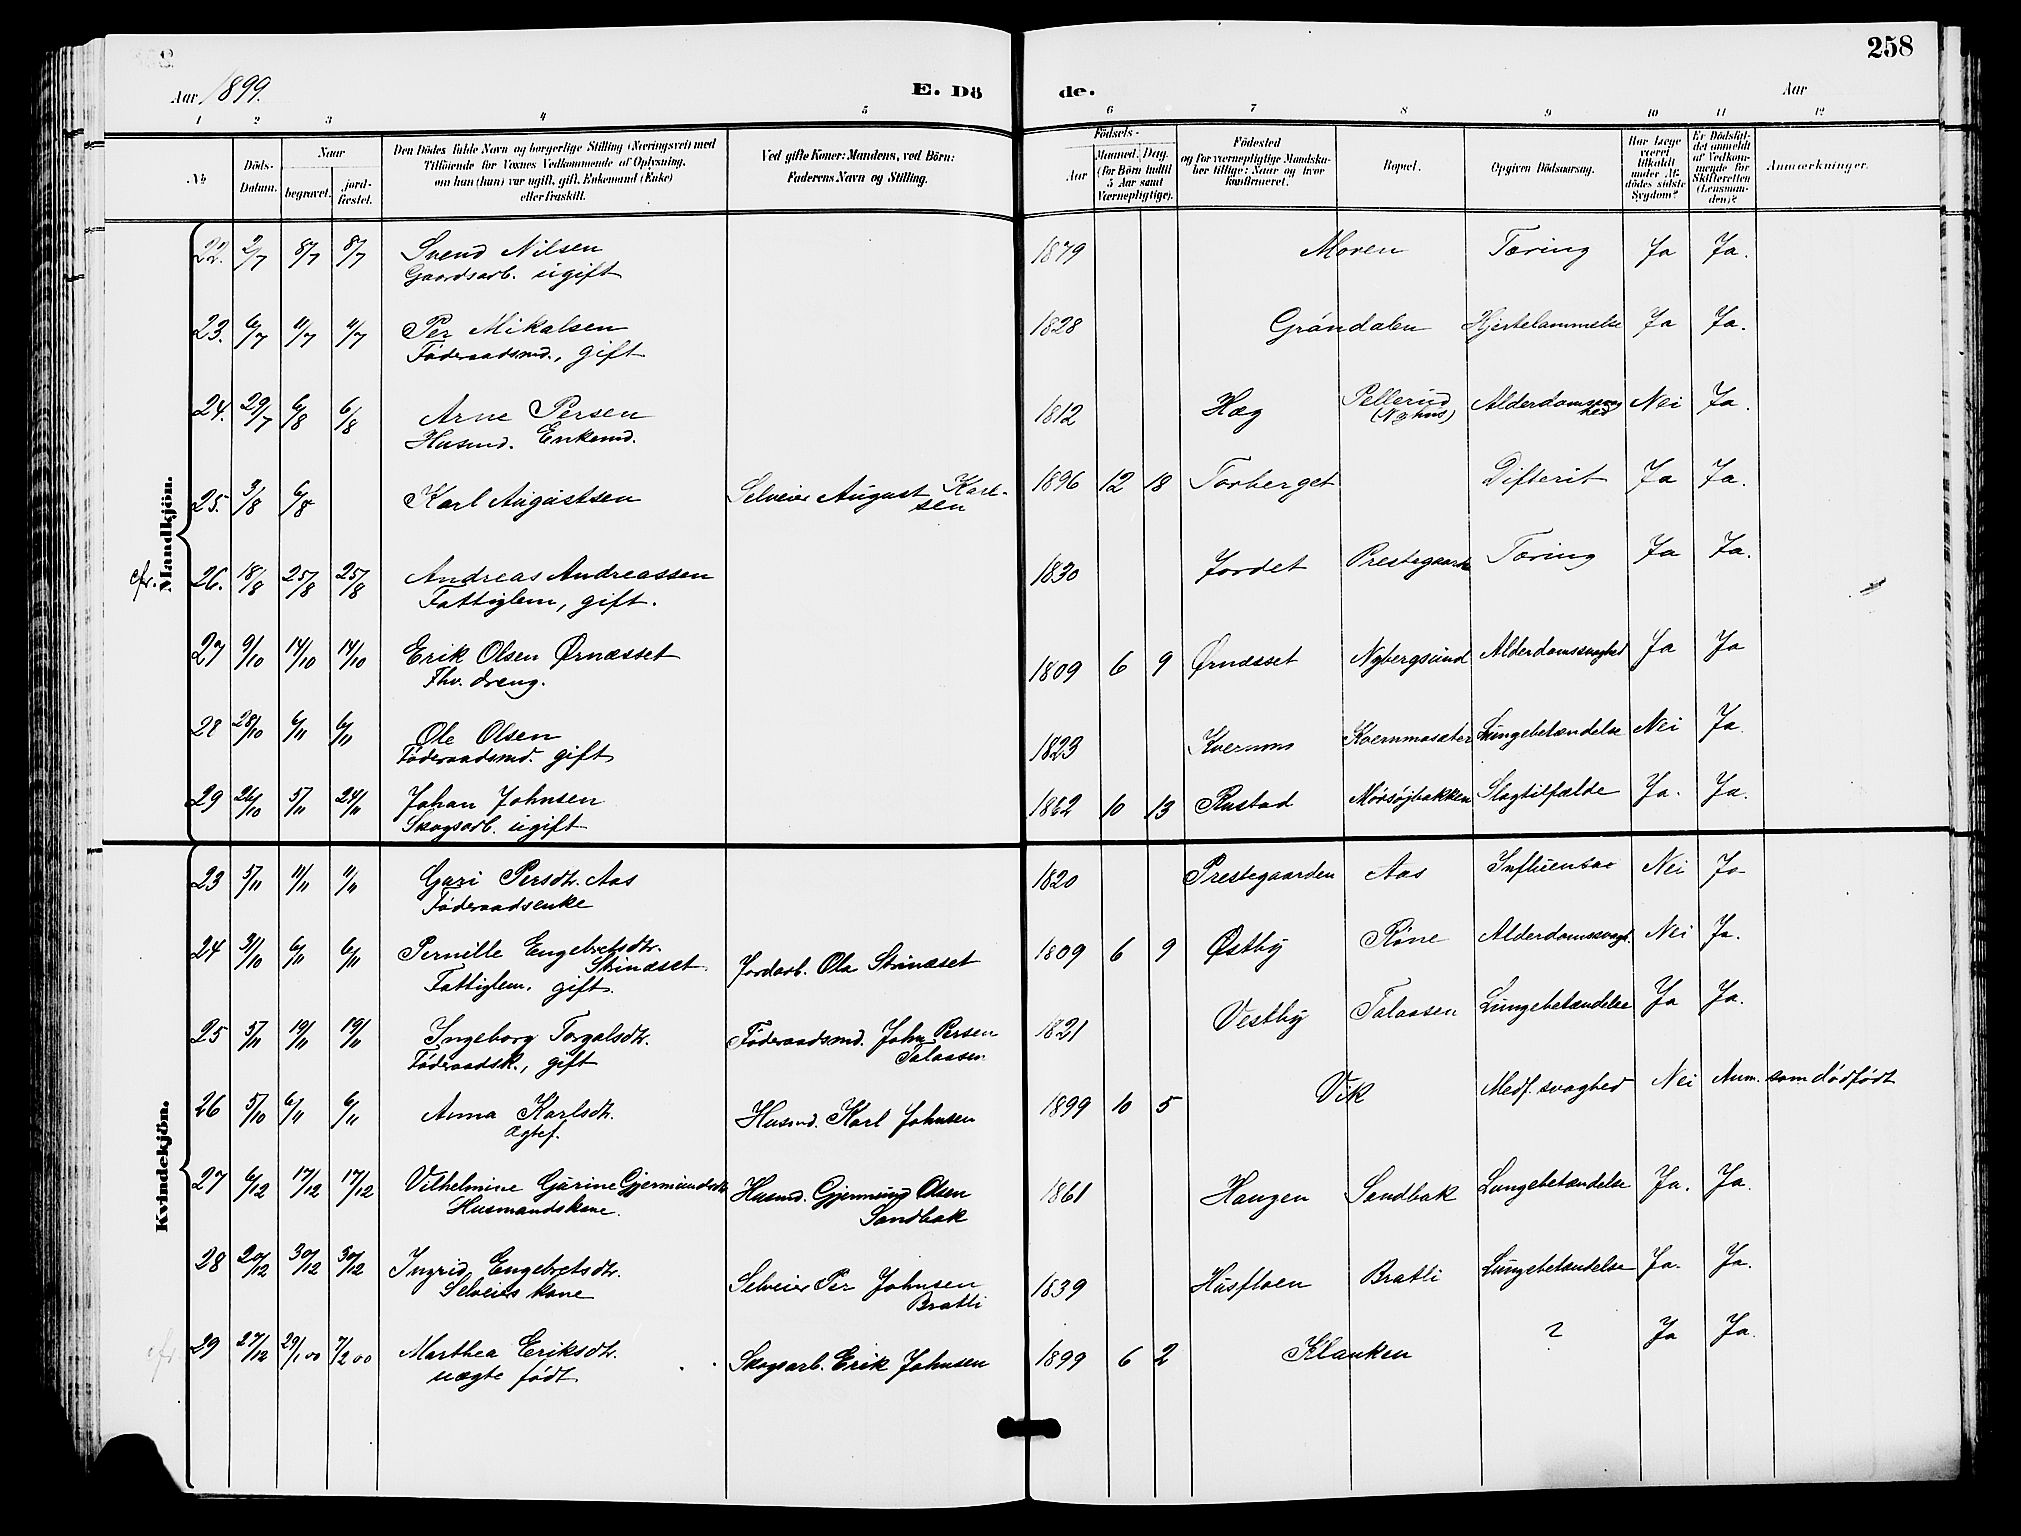 258
Aar 1899.
E. Dö de.
Aar
1 2 3 4 5 6 7 8 9 10 11 12
№
Döds-
Datum.
Naar
begravet. jord-
fæstet.
Den Dödes fulde Navn og borgerlige Stilling (Næringsvei) med
Tilföiende for Voxnes Vedkommende af Oplysning,
om han (hun) var ugift, gift, Enkemand (Enke)
eller fraskilt.
Ved gifte Koner: Mandens, ved Börn:
Faderens Navn og Stilling.
Födsels-
Aar
Maaned. Dag.
(for Börn indtil
5 Aar samt
Værnepligtige).
Födested
og for værnepligtige Mandska-
ber tillige: Naar og hvor
konfirmeret.
Bopæl.
Opgiven Dödsaarsag.
Har Læge
været
tilkaldt
under Af-
dödes sidste
Sygdom?
Er Dödsfal-
det anmeldt
af Vedkom-
mende for
Skifteretten
(Lensman-
den)?
Anmærkninger.
Mandkjön.
22. 2/7 8/7 8/7 Svend Nilsen 1879 Moren Tæring Ja Ja.
Gaardsarb. ugift
23. 6/7 11/7 11/7 Per Mikalsen 1828 Gröndalen Hjertelammelse Ja Ja.
Föderaadsmd., gift
24. 29/7 6/8 6/8 Arne Persen 1812 Hæg Pellerud (Nyhus) Alderdomssvaghed Nei Ja.
Husmd. Enkemd.
25. 3/8 6/8 Karl Augustsen Selveier August Karl-
sen 1896 12 18 Torberget Difterit Ja Ja.
cfr. 26. 18/8 25/8 25/8 Andreas Andreassen 1830 Jordet Prestegaarden Tæring Ja Ja.
Fattiglem, gift.
27 9/10 14/10 14/10 Erik Olsen Ørnæsset 1809 6 9 Ørnæsset Nybergsund Alderdomssvaghed Ja Ja
Fhv. dreng.
28 28/10 6/11 6/11 Ole Olsen 1823 Kværnms Kvernmosæter Lungebetændelse Nei Ja.
Föderaadsmd. gift
29 26/10 5/11 24/11 Johan Johnsen 1862 10 13 Rustad Mörsöjbakken Slagtilfælde Ja. Ja.
Skogsarb. ugift
Kvindekjön.
23 5/11 11/11 11/11 Guri Persdtr. Aas 1820 Prestegaarden Aas Influensa Nei Ja
Föderaadsenke
24 31/10 6/11 6/11 Pernille Engebretsdtr. Jordarb. Ola Strinæset 1809 6 9 Østby Röne Alderdomssvagh. Nei Ja.
Strinæset
Fattiglem. gift.
25 5/11 19/11 19/11 Ingeborg Torgalsdtr. Föderaadsmd. John Persen 1821 Vestby Talaasen Lungebetændelse Ja Ja.
Föderaadsk., gift Talaasen
26 5/10 6/11 6/11 Anna Karlsdtr. Husmd. Karl Johnsen 1899 10 5 Vik Medf. svaghed Nei Anm. som dödfödt
Ægtef.
27 6/12 17/12 17/12 Vilhelmine Gurine Gjermundsdtr Husmd. Gjermund Olsen 1861 Haugen Sandbak Lungebetændelse Ja. Ja.
Husmandskone. Sandbak
28 20/12 30/12 30/12 Ingrid Engebretsdtr. Selveier Per Johnsen 1839 Husfloen Bratli Lungebetændelse Ja. Ja.
Selveiers kone Bratli
cfr. 29 27/12 29/1 00 7/2 00 Marthea Eriksdtr. Skogsarb. Erik Johnsen 1899 6 2 Klanken ? Ja Ja.
uægte födt.